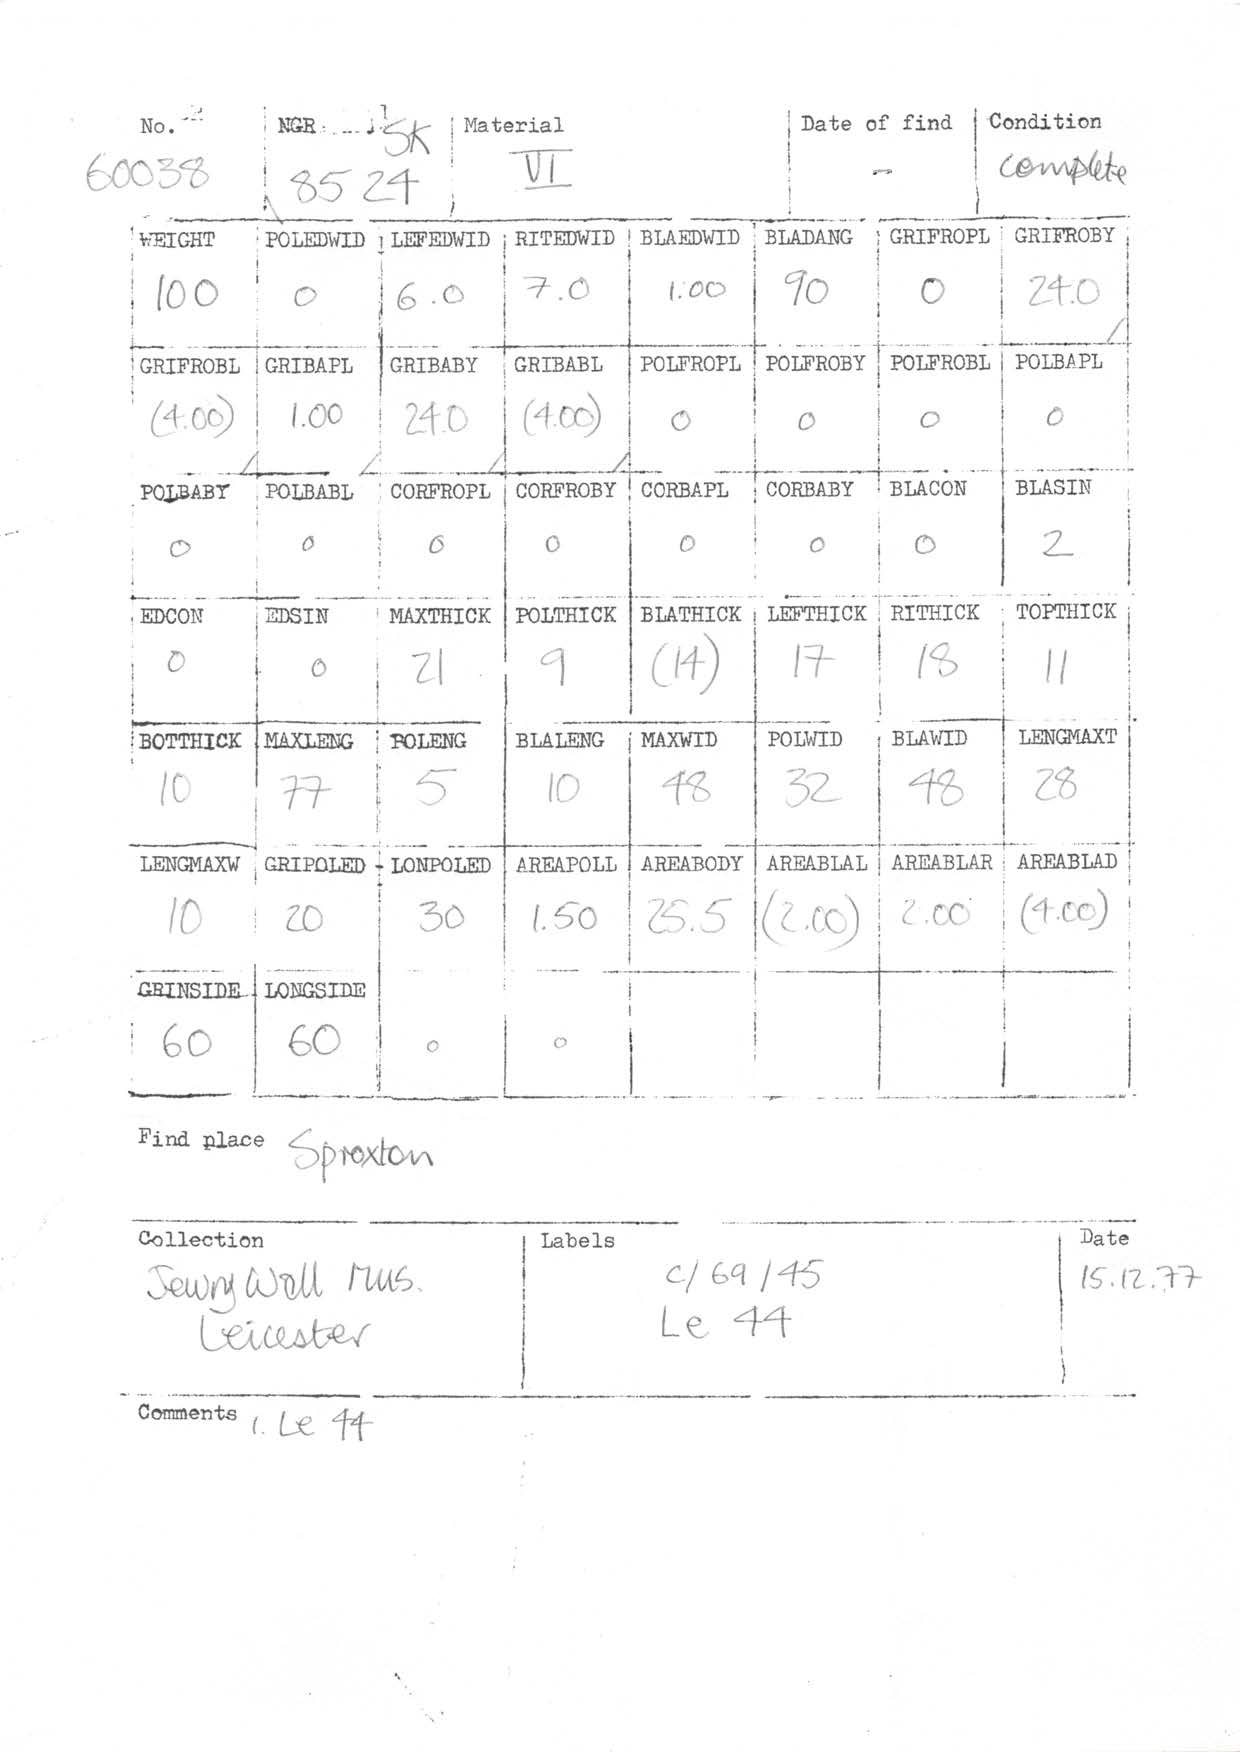 No. NGR SK Material Date of find Condition
60038 85 24 VI - complete
WEIGHT POLEDWID LEFEDWID RITEDWID BLAEDWID BLADANG GRIFROPL GRIFROBY
100 0 6.0 7.0 1.00 90 0 24.0
GRIFROBL GRIBAPL GRIBABY GRIBABL POLFROPL POLFROBY POLFROBL POLBAPL
(4.00) 1.00 24.0 (4.00) 0 0 0 0
POLBABY POLBABL CORFROPL CORFROBY CORBAPL CORBABY BLACON BLASIN
0 0 0 0 0 0 0 2
EDCON EDSIN MAXTHICK POLTHICK BLATHICK LEFTHICK RITHICK TOPTHICK
0 0 21 9 (14) 17 18 11
BOTTHICK MAXLENG POLENG BLALENG MAXWID POLWID BLAWID LENGMAXT
10 77 5 10 48 32 48 28
LENGMAXW GRIPOLED LONPOLED AREAPOLL AREABODY AREABLAL AREABLAR AREABLAD
10 20 30 1.50 25.5 (2.00) 2.00 (4.00)
GRINSIDE LONGSIDE
60 60 0 0
Find place Sproxton
Collection Labels Date
Jewry Wall Mus. C/69/45 15.12.77
Leicester Le 44
Comments 1. Le 44